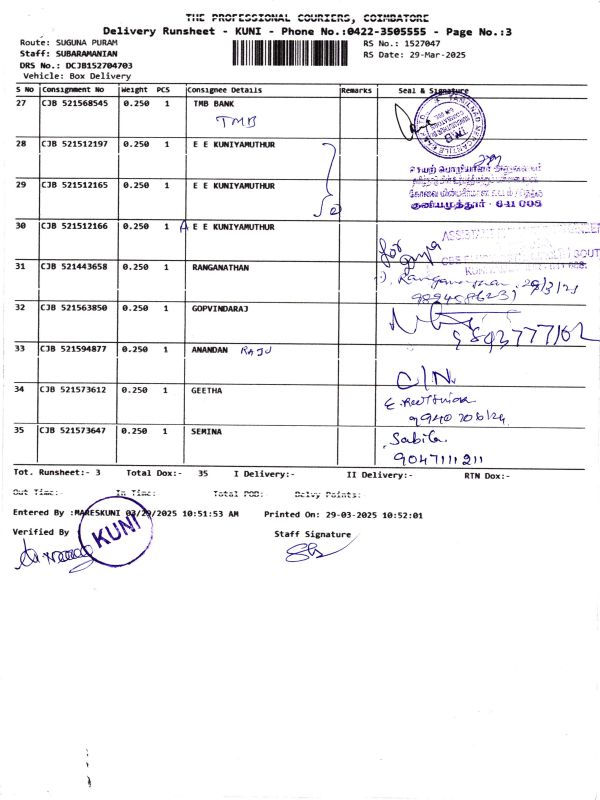 THE PROFESSIONAL COURIERS, COIMBATORE
Delivery Runsheet - KUNI - Phone No.:0422-3505555 - Page No.:3
Route: SUGUNA PURAM
RS No.: 1527047
Staff: SUBARAMANIAN
RS Date: 29-Mar-2025
DRS No.: DCJB152704703
Vehicle: Box Delivery
S No Consignment No Weight PCS Consignee Details Remarks Seal & Signature
27 CJB 521568545 0.250 1 TMB BANK
TMB
28 CJB 521512197 0.250 1 E E KUNIYAMUTHUR
29 CJB 521512165 0.250 1 E E KUNIYAMUTHUR
குனியமுத்தூர் - 641 008
30 CJB 521512166 0.250 1 A E E KUNIYAMUTHUR
for
31 CJB 521443658 0.250 1 RANGANATHAN
32 CJB 521563850 0.250 1 GOPVINDARAJ
9843777162
33 CJB 521594877 0.250 1 ANANDAN RAJU
C/N.
34 CJB 521573612 0.250 1 GEETHA
35 CJB 521573647 0.250 1 SEMINA
Sabila.
9047111211
Tot. Runsheet:- 3 Total Dox:- 35 I Delivery:- II Delivery:- RTN Dox:-
Out Time:- In Time:- Total POD:- Delvy Points:-
Entered By :MARESKUNI 03/29/2025 10:51:53 AM Printed On: 29-03-2025 10:52:01
Verified By
KUNI
Staff Signature